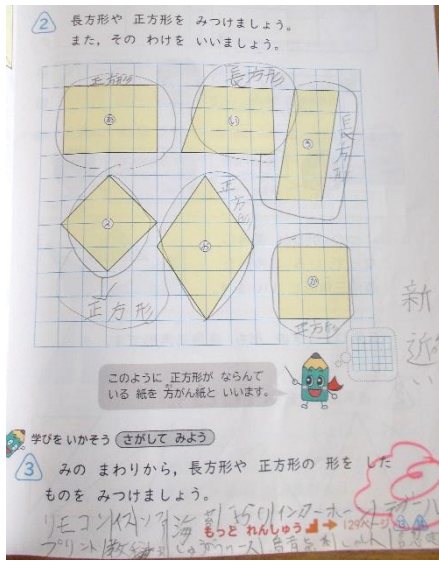 2 長方形や 正方形を みつけましょう。
また，その わけを いいましょう。
正方形
長方形
あ
い
う
長方形
正方形
え
お
か
正方形
正方形
新
近い
このように 正方形が ならんで
いる 紙を 方がん紙と いいます。
学びを いかそう さがして みよう
3 みの まわりから，長方形や 正方形の 形を した
ものを みつけましょう。
リモコン
もっと れんしゅう → 129ページ
プリント